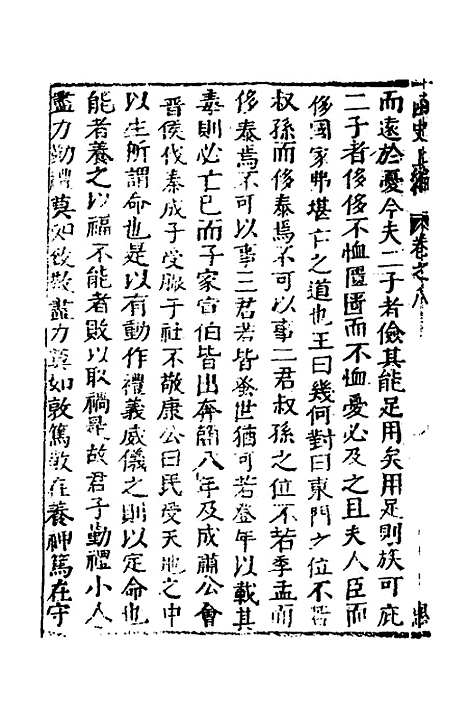 函史上編 卷之八
而遠於憂今夫二子者儉其能足用矣用足則族可庇
二子者侈侈不恤匱匱而不恤憂必及之且夫人臣而
侈國家弗堪亡之道也王曰幾何對曰東門之位不若
叔孫而侈泰焉不可以事二君叔孫之位不若季孟而
侈泰焉不可以事三君若皆蚤世猶可若登年以載其
毒則必亡已而子家宣伯皆出奔簡八年及成肅公會
晉侯伐秦成子受脤于社不敬康公曰民受天地之中
以生所謂命也是以有動作禮義威儀之則以定命也
能者養之以福不能者敗以取禍是故君子勤禮小人
盡力勤禮莫如致敬盡力莫如敦篤敬在養神篤在守